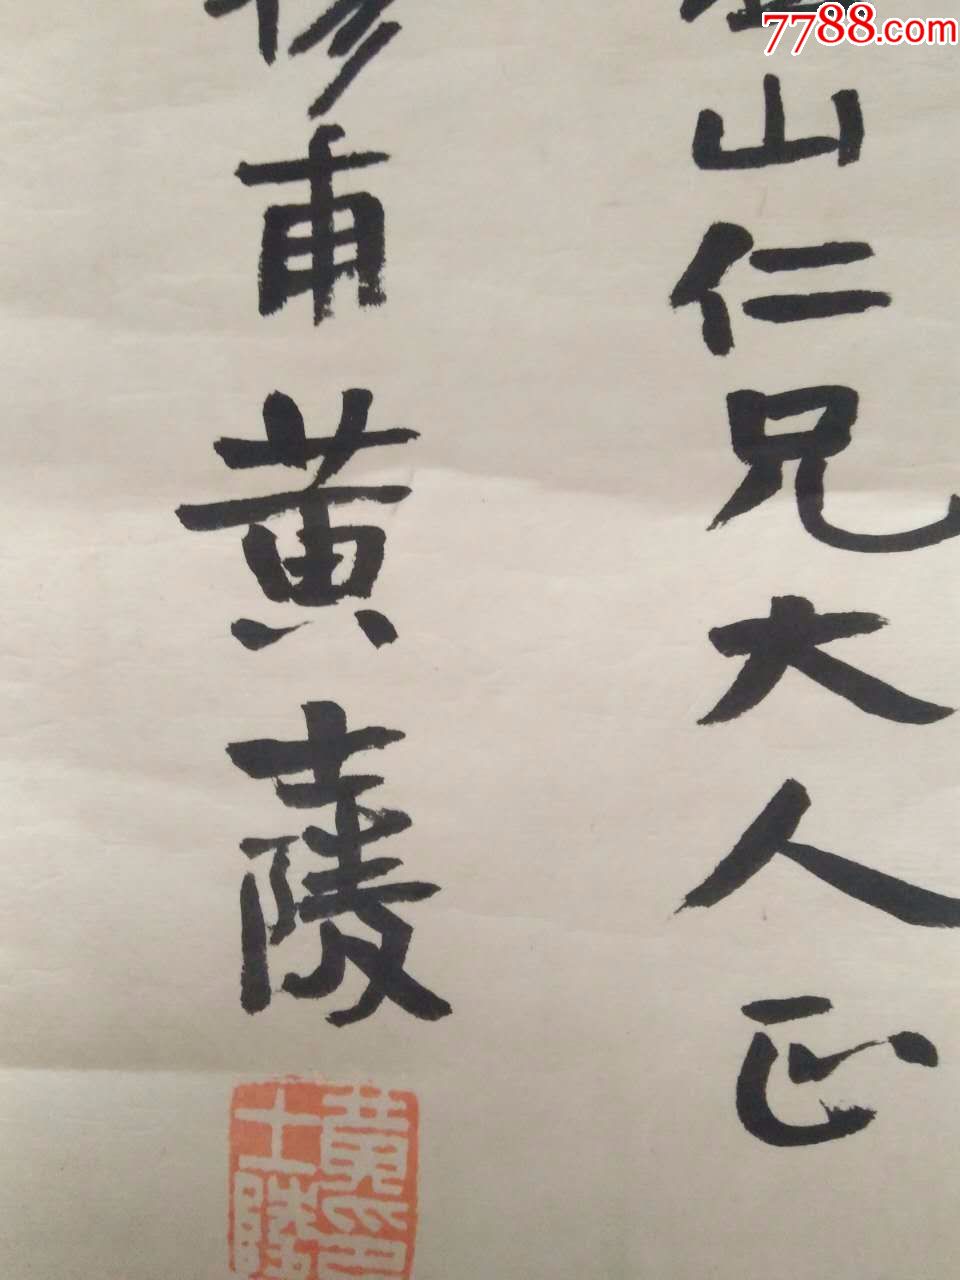 7788.com
山仁兄大人正
穆甫黄士陵
黄印
士陵